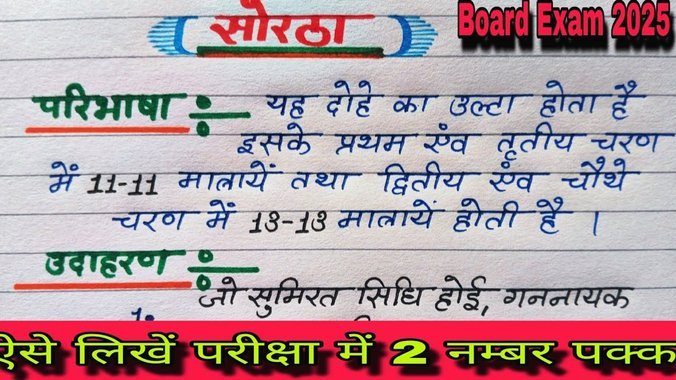 सोरठा
Board Exam 2025
परिभाषा :- यह दोहे का उल्टा होता है
इसके प्रथम एंव तृतीय चरण
में 11-11 मात्रायें तथा द्वितीय एंव चौथे
चरण में 13-13 मात्रायें होती है ।
उदाहरण :-
जो सुमिरत सिधि होई, गननायक
1.
ऐसे लिखें परीक्षा में 2 नम्बर पक्क